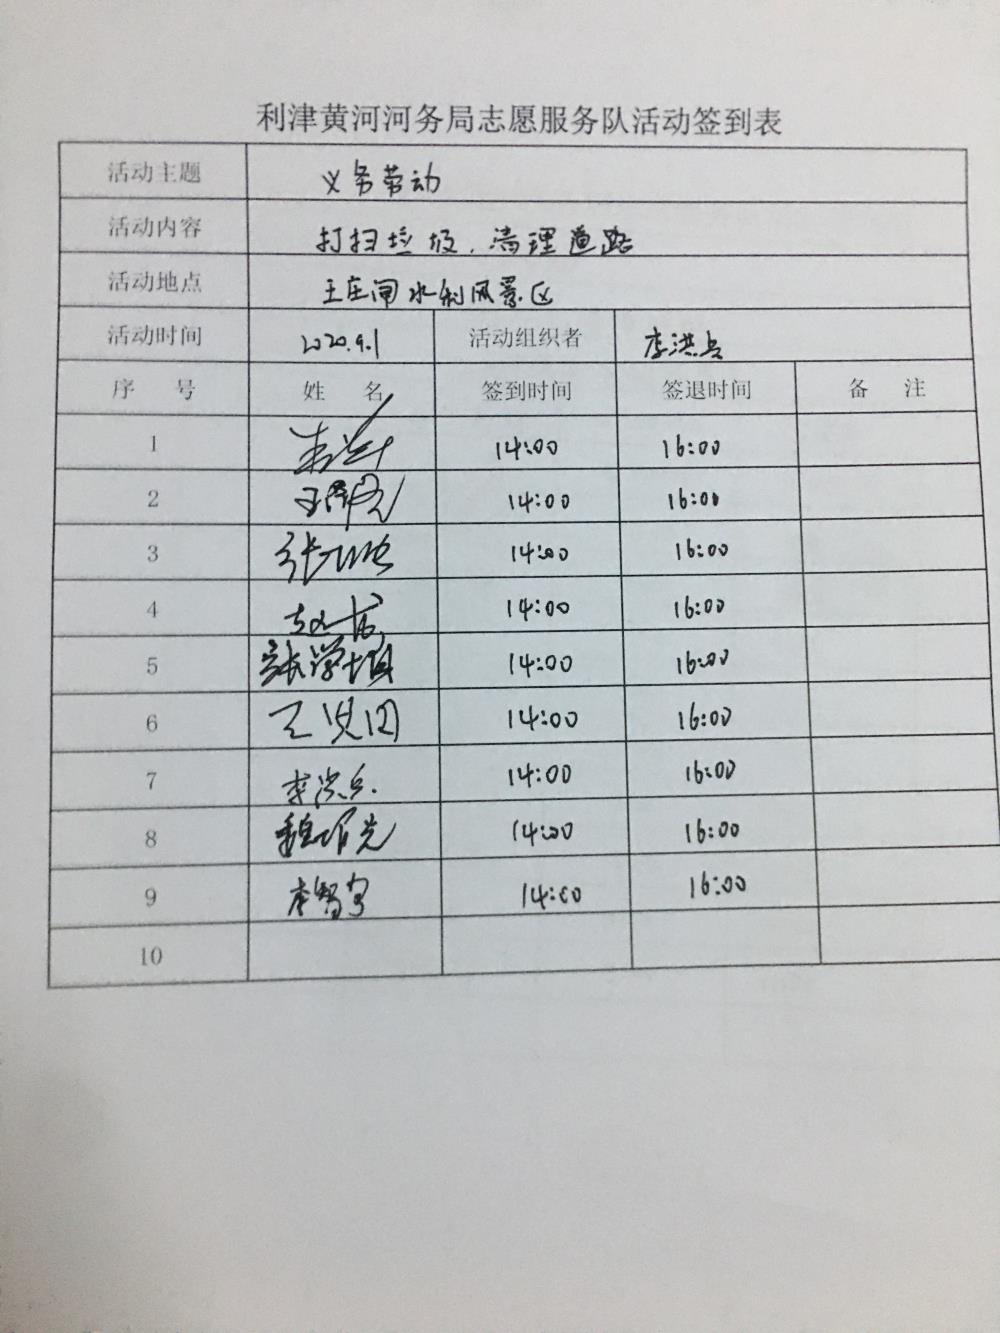 利津黄河河务局志愿服务队活动签到表
活动主题 义务劳动
活动内容 打扫垃圾、清理道路
活动地点 王庄闸水利风景区
活动时间 2020.9.1 活动组织者 李洪兵
序 号 姓 名 签到时间 签退时间 备 注
1 14:00 16:00
2 14:00 16:00
3 张 14:00 16:00
4 赵 14:00 16:00
5 张学 14:00 16:00
6 王 14:00 16:00
7 李洪兵 14:00 16:00
8 魏 14:00 16:00
9 李 14:00 16:00
10